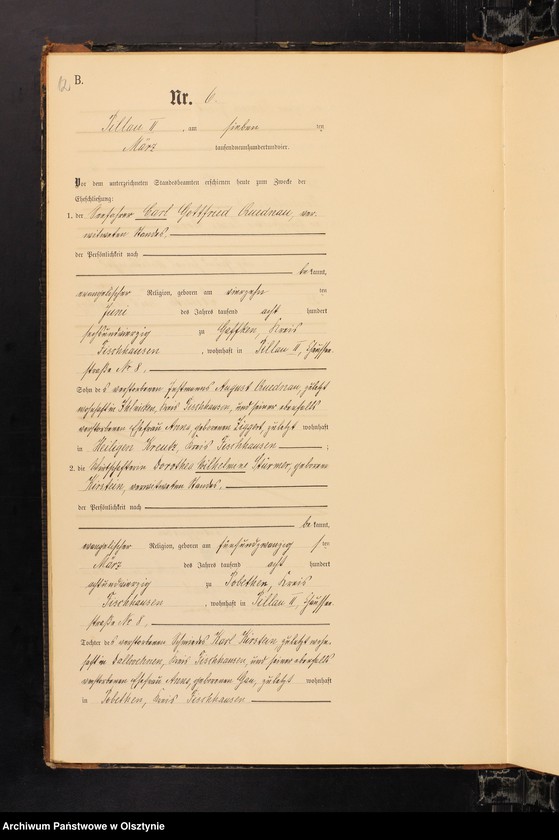 B.
Nr. 6.
Pillau II, am sieben ten
März tausendneunhundertundvier.
Vor dem unterzeichneten Standesbeamten erschienen heute zum Zwecke der
Eheschließung:
1. der Carl Gottfried Quednau, ver-
witweten Standes,
der Persönlichkeit nach
be kannt,
evangelischer Religion, geboren am vierzehn ten
Juni des Jahres tausend acht hundert
sechsundvierzig zu Gaffken, Kreis
Fischhausen, wohnhaft in Pillau II,
straße Nr 8.
Sohn des verstorbenen August Quednau, zuletzt
wohnhaft in Kreis Fischhausen, und seiner ebenfalls
verstorbenen Ehefrau Anna, geborenen zuletzt wohnhaft
in Heiligen Kreutz, Kreis Fischhausen ;
2. die Dorothea Wilhelmine Stürmer, geborene
Kirstein, verwitweten Standes,
der Persönlichkeit nach
be kannt,
evangelischer Religion, geboren am fünfundzwanzig sten
März des Jahres tausend acht hundert
achtundvierzig zu Pobethen, Kreis
Fischhausen, wohnhaft in Pillau II,
straße Nr 8.
Tochter des verstorbenen Schmiedes Karl Kirstein, zuletzt wohn-
haft in Kreis Fischhausen, und seiner ebenfalls
verstorbenen Ehefrau Anna, geborenen zuletzt wohnhaft
in Pobethen, Kreis Fischhausen
Archiwum Państwowe w Olsztynie